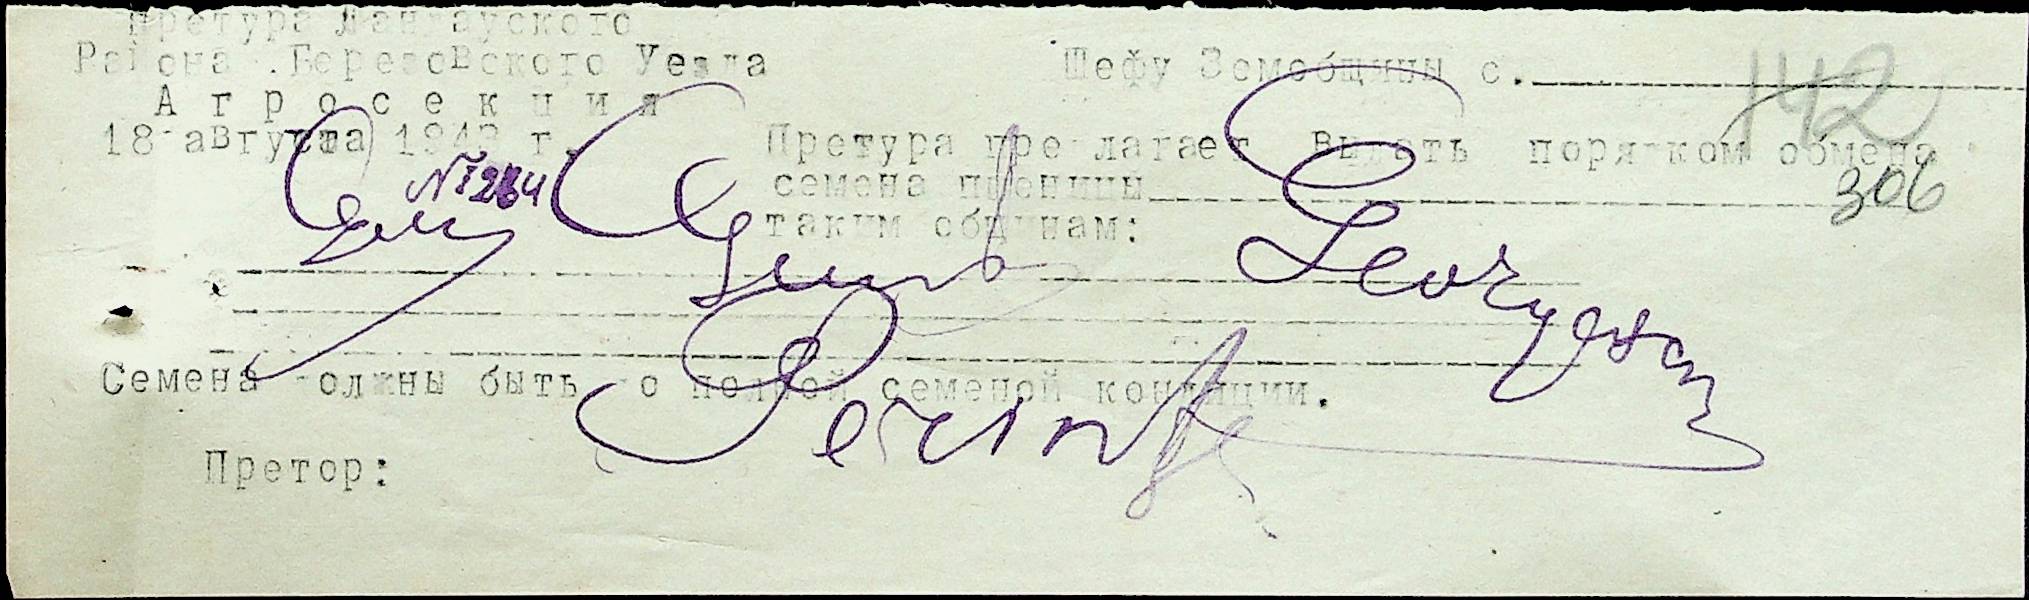 Претура Ландауского
Района Березовского Уезда
Агросекция
18 августа 1943 г.
№ 1284
Шефу Земобщины с.
142
Претура предлагает выдать порядком обмена
306
семена пшеницы
таким общинам:
Семена должны быть до полной семеной кондиции.
Претор: